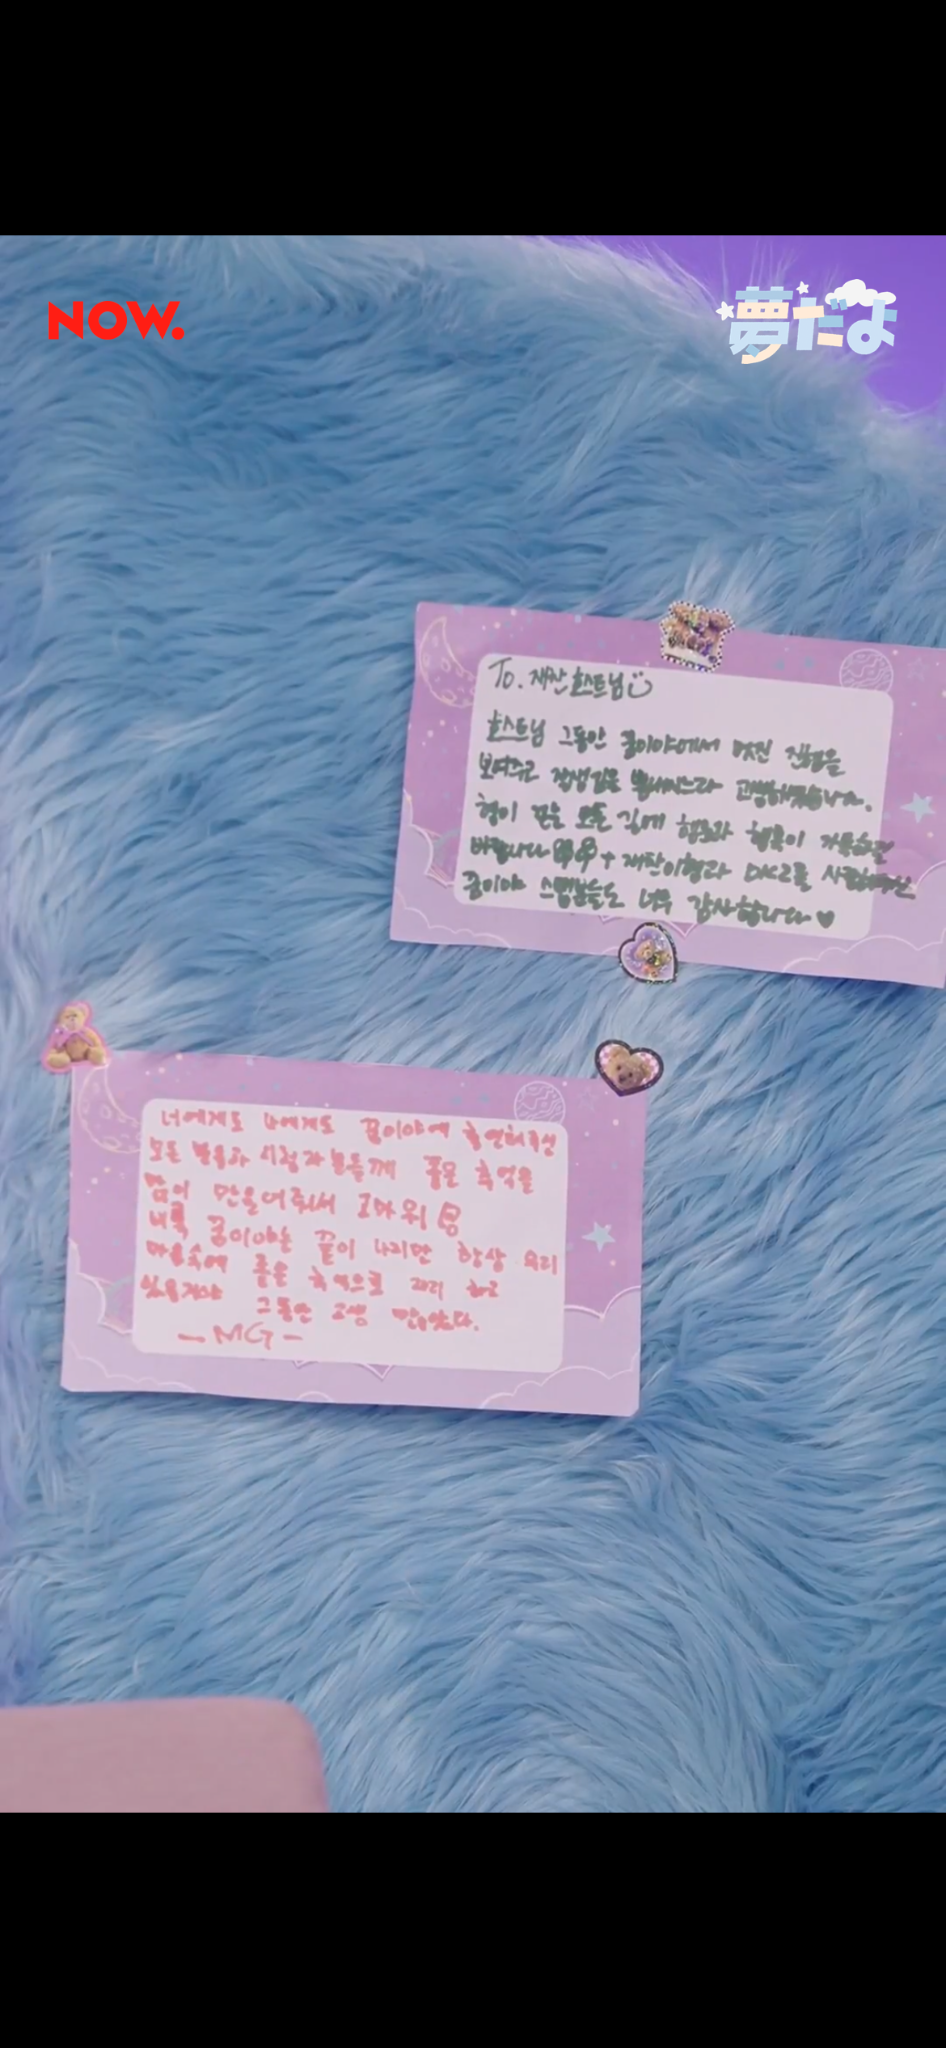 NOW.
夢だよ
To. 재찬 호스트님
호스트님 그동안 꿈이야에서 멋진 진행을
보여주고 잘생김을 뽐내시느라 고생하셨습니다.
형이 걷는 모든 길에 행운과 행복이 가득하길
바랍니다 + 재찬이형과 DKZ를 사랑해주신
꿈이야 스탭분들도 너무 감사합니다
너에게도 나에게도 꿈이야에 출연해주신
모든 분들과 시청자분들께 좋은 추억을
많이 만들어줘서 고마워
비록 꿈이야는 끝이 나지만 항상 우리
마음속에 좋은 추억으로 자리 하고
있을거야 그동안 고생 많았다.
- MG -